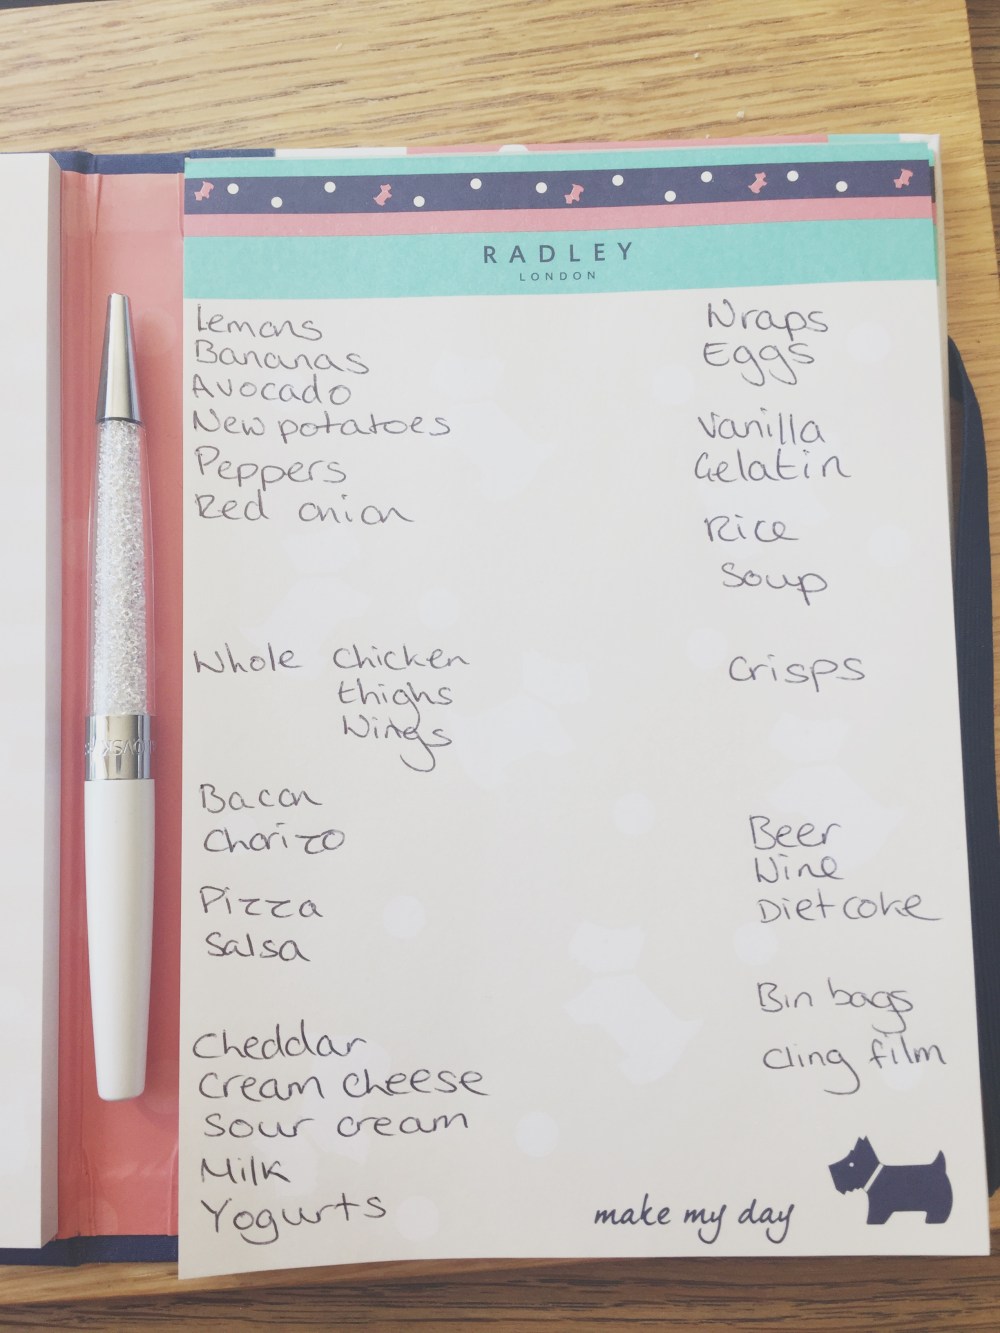 RADLEY
LONDON
Lemons
Bananas
Avocado
New potatoes
Peppers
Red onion
Whole chicken
thighs
Wings
Bacon
Chorizo
Pizza
Salsa
Cheddar
Cream cheese
Sour cream
Milk
Yogurts
Wraps
Eggs
Vanilla
Gelatin
Rice
Soup
Crisps
Beer
Wine
Diet coke
Bin bags
Cling film
make my day